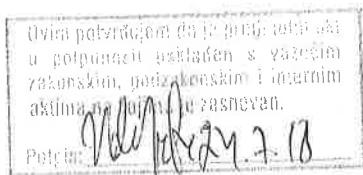 Ovim potvrđujem da je predmetni akt
u potpunosti usklađen s važećim
zakonskim, podzakonskim i internim
aktima na kojima je zasnovan.
Potpis: 24.7.18